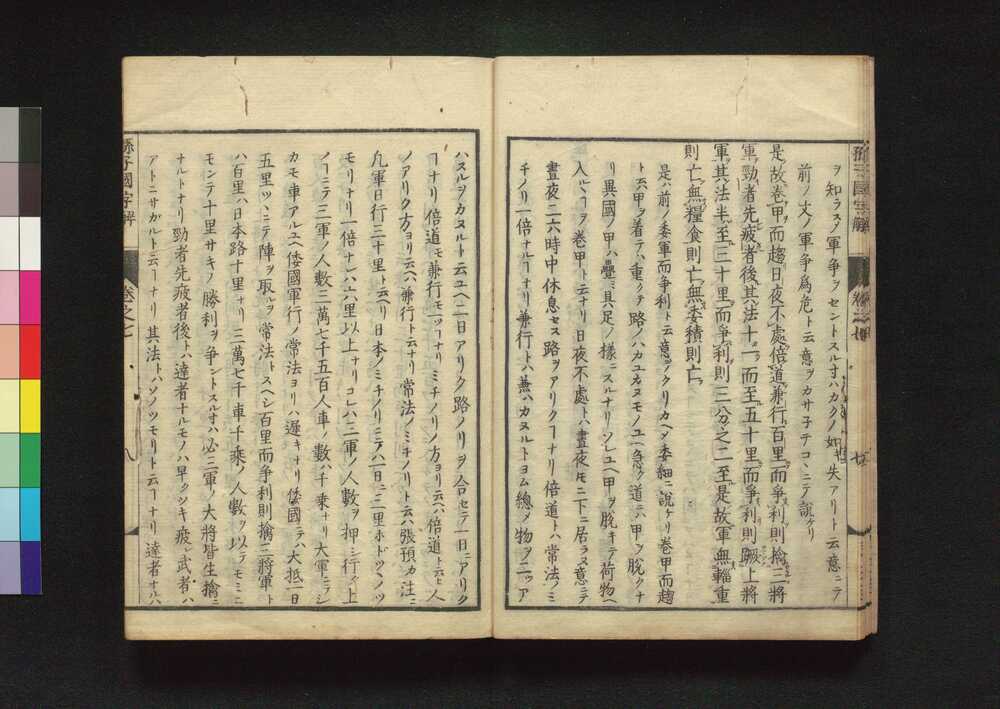 孫子國字解
卷之七
七
ヲ知ラスノ軍争ヲセントスル寸ハカクノ如キ失アリト云意ニテ
前ノ文ノ軍争爲危ト云意ヲカサ子テコヽニテ説ケリ
是故卷甲而趨日夜不處倍道兼行百里而爭利則擒三將
軍勁者先疲者後其法十一而至五十里而爭利則蹶上將
軍其法半至三十里而爭利則三分之二至是故軍無輜重
則亡無糧食則亡無委積則亡
是ハ前ノ委軍而争利ト云意ヲクリカヘシ委細ニ説ケリ卷甲而趨
ト云甲ヲ着テハ重クテ路ノハカユカヌモノユヘ急ク道ニハ甲ヲ脱クナ
リ異國ノ甲ハ疊具足ノ様ニスルナリソレユヘ甲ヲ脱キテ荷物ヘ
入ルヽヿヲ卷甲ト云ナリ日夜不處トハ晝夜トモニ下ニ居ラヌ意ニテ
晝夜二六時中休息セス路ヲアリクヿナリ倍道トハ常法ノミ
チノリ一倍ナルヿナリ兼行トハ兼ハカヌルトヨム總メ物ヲ二ツア
ハスルヲカヌルト云ユヘ二日アリク路ノリヲ合セテ一日ニアリク
ヿナリ倍道モ兼行モ一ツヿナリミチノリノ方ヨリ云ヘハ倍道ト云ヒ人
ノアリク方ヨリ云ヘハ兼行ト云ナリ常法ノミチノリト云ハ張預カ注ニ
凡軍日行三十里ト云ヘリ日本ノミチノリニテハ一日ニ二里ホドツヽノツ
モリナリ一倍ナレハ六里以上ナリコレハ三軍ノ人數ヲ押シ行ク上
ノヿニテ三軍ノ人數三萬七千五百人車ノ數ハ千乗ナリ大軍ニシ
カモ車アルユヘ倭國軍行ノ常法ヨリハ遲キナリ倭國ニテハ大抵一日
五里ツヽニテ陣ヲ取ルヲ常法トスヘシ百里而争利則擒三將軍ト
ハ百里ハ日本路十里ナリ三萬七千車千乗ノ人數ヲ以テモミニ
モンテ十里サキノ勝利ヲ争ントスル寸ハ必三軍ノ大將皆生擒ニ
ナルトナリ勁者先疲者後トハ達者ナルモノハ早クツキ疲レ武者ハ
アトニサカルト云ヿナリ其法トハソノツモリト云ヿナリ達者ナルハ
孫子國字解
卷之七
八